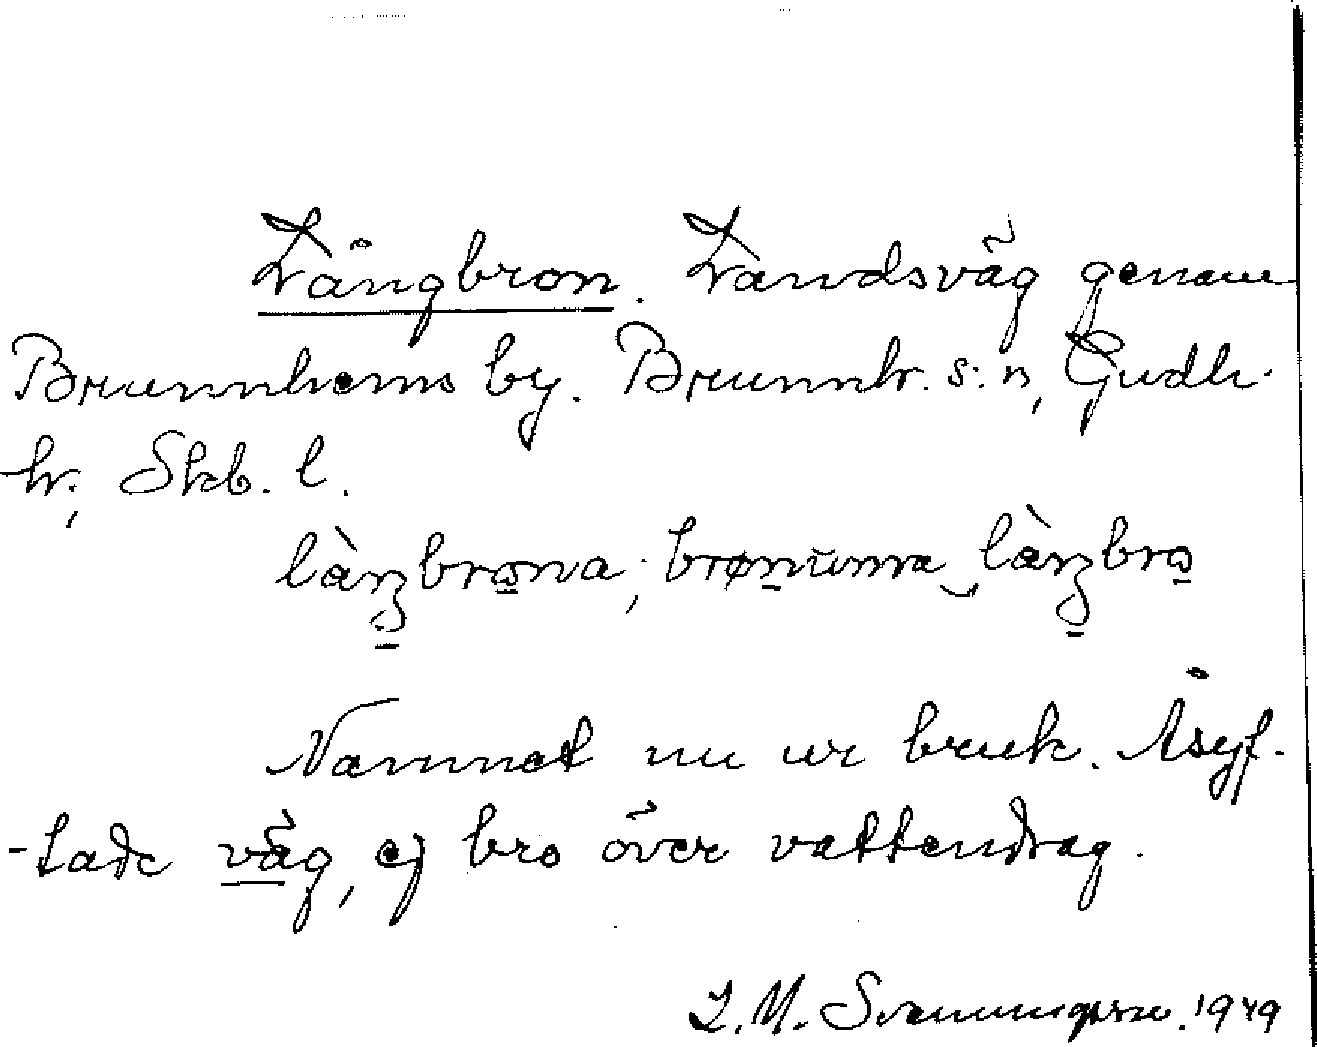 Långbron. Landsväg genom
Brunnhems by. Brunnh. s:n, Gudh.
hr; Skb. l.
Namnet nu ur bruk. Åsyf-
-tade väg, ej bro över vattendrag.
J. M. Svenningsson. 1949